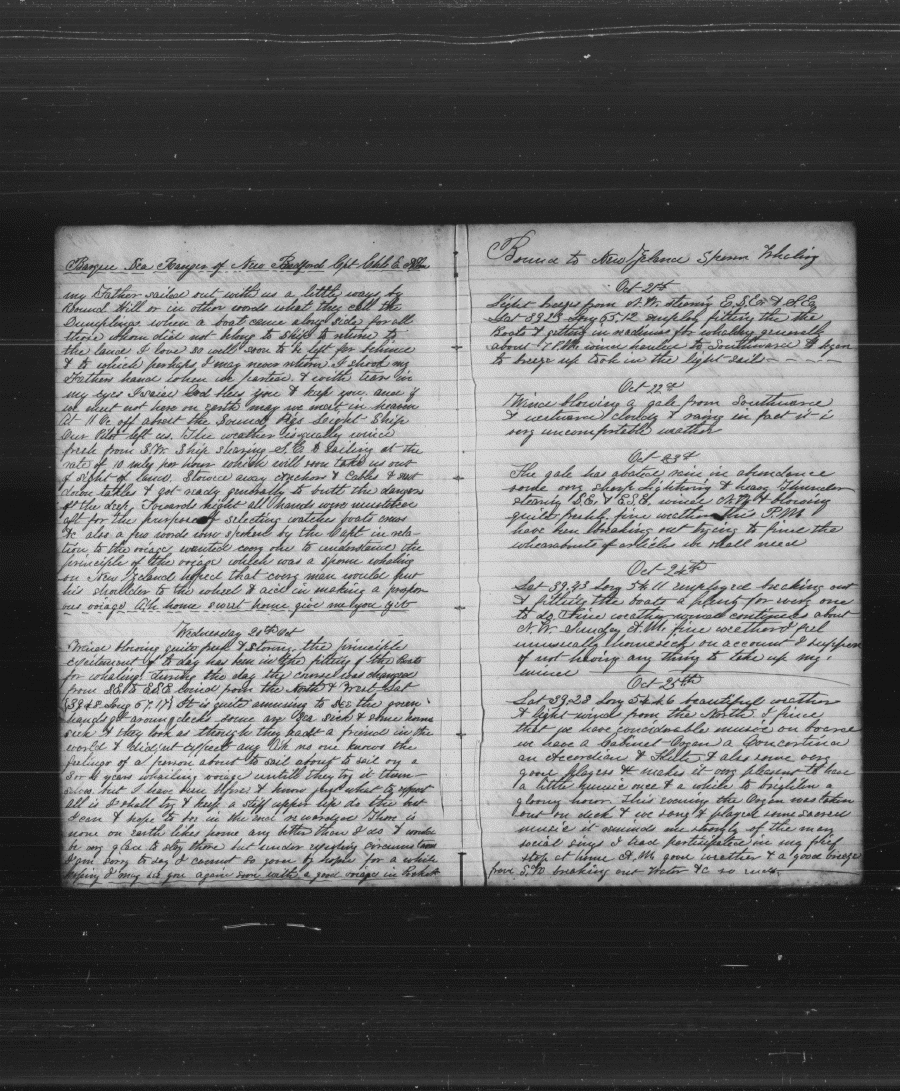 Barque Sea Ranger of New Bedford Capt Chls E Allen
my Father sailed out with us a little ways by
Round Hill or in other words what they call the
Dumplings when a boat came along side for all
those whom did not belong to Ship to return to
the land I love so well soon to be left far behind
& to which perhaps I may never return I shook my
Fathers hand when we parted & with tears in
my eyes I said God bless you & keep you and if
we meet not here on earth may we meet in heaven
At 11 Oc off about the Sound Pigs Light Ship
Our Pilot left us. The weather is squally wind
fresh from S.W. Ship steering S.E. & sailing at the
rate of 10 mls per hour which will soon take us out
of sight of land. Stowed away Anchors & Cables & sent
down tables & got ready generally to buth the dangers
of the deep. Towards night all hands were mustered
aft for the purpose of selecting watches boats crews
&c also a few words were spoken by the Capt in rela-
tion to the voiage wanted every one to understand the
principle of the voiage which was a sperm whaling
on New Zeland hoped that every man would put
his shoulder to the wheel & aid in making a prosper-
ous voiage. Oh home sweet home give me you yet
Wednesday 20th Oct
Wind blowing quite fresh & strong, the principle
excitement of to day has been in the fitting of the boats
for whaling during the day the course was changed
from S.E. to E.S.E. wind from the North & West Lat
(39.42 Long 67.17) It is quite amusing to see the green-
hands go around decks some are Sea sick & some home
sick & they look as though they hadst a friend in the
world & didsent expect any Oh no one knows the
feelings of a person about to sail about to sail on a
3 or 4 years whailing voiage untill they try it them-
selves but I have been before & know just what to expect
all is I shall try & keep a stiff upper lip do the best
I can & hope to be in the end rewarded There is
none on earth likes home any better than I do & would
be very glad to stay there but under existing circumstances
I am sorry to say I cannot so good by home for a while
hoping I may see you again soon with a good voiage in pocket
Bound to New Zeland Sperm Whaling
Oct 21st
Light breezes from N.W. steering E.S.E. & S.E.
Lat 39.23 Long 65.12 employ fitting the the
boats & getting in readiness for whaling generally
about 7 P.M. wind hauled to Southward & began
to breeze up took in the light sail - - - -
Oct 22d
Wind blowing a gale from Southward
& westward cloudy & rainy in fact it is
very uncomfortable weather
Oct 23d
The gale has abated rain in abundance
some very sharp lightning & heavy thunder
steering S.E. & E.S.E. wind N.W. & blowing
quite fresh, fine weather this P.M.
have been breaking out trying to find the
whereabouts of articles we shall need
Oct 24th
Lat 39.23 Long 54.11 employed breaking out
& fitting the boats a plenty for every one
to do Fine weather wind continues about
N.W. Sunday A.M. fine weather feel
unusually homesick on account I suppose
of not having any thing to take up my
mind
Oct 25th
Lat 39.23 Long 54.46 beautiful weather
& light wind from the North. I find
that we have considerable music on board
we have a Cabinet Organ a Concertina
an Accordian & Flute & also some very
good players & makes it very pleasant to have
a little music once & a while to brighten a
gloomy hour. This evening the Organ was taken
out on deck & we sang & played some sacred
music it reminds me strongly of the many
social sings I had participated in my brief
stop at home A.M. good weather & a good breeze
from S.W. breaking out Water &c so ends.